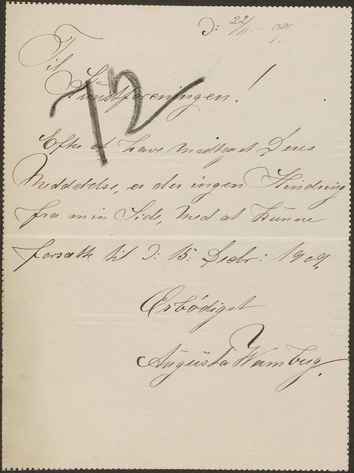 D: 22/11 - 09.
Til
Kunstforeningen!
72
Efter at have modtaget Deres
Meddelelse, er der ingen Hindring
fra min Side, med at kunne
forsætte til D: 15. Decbr: 1909.
Erbødigst
Augusta Wamberg.